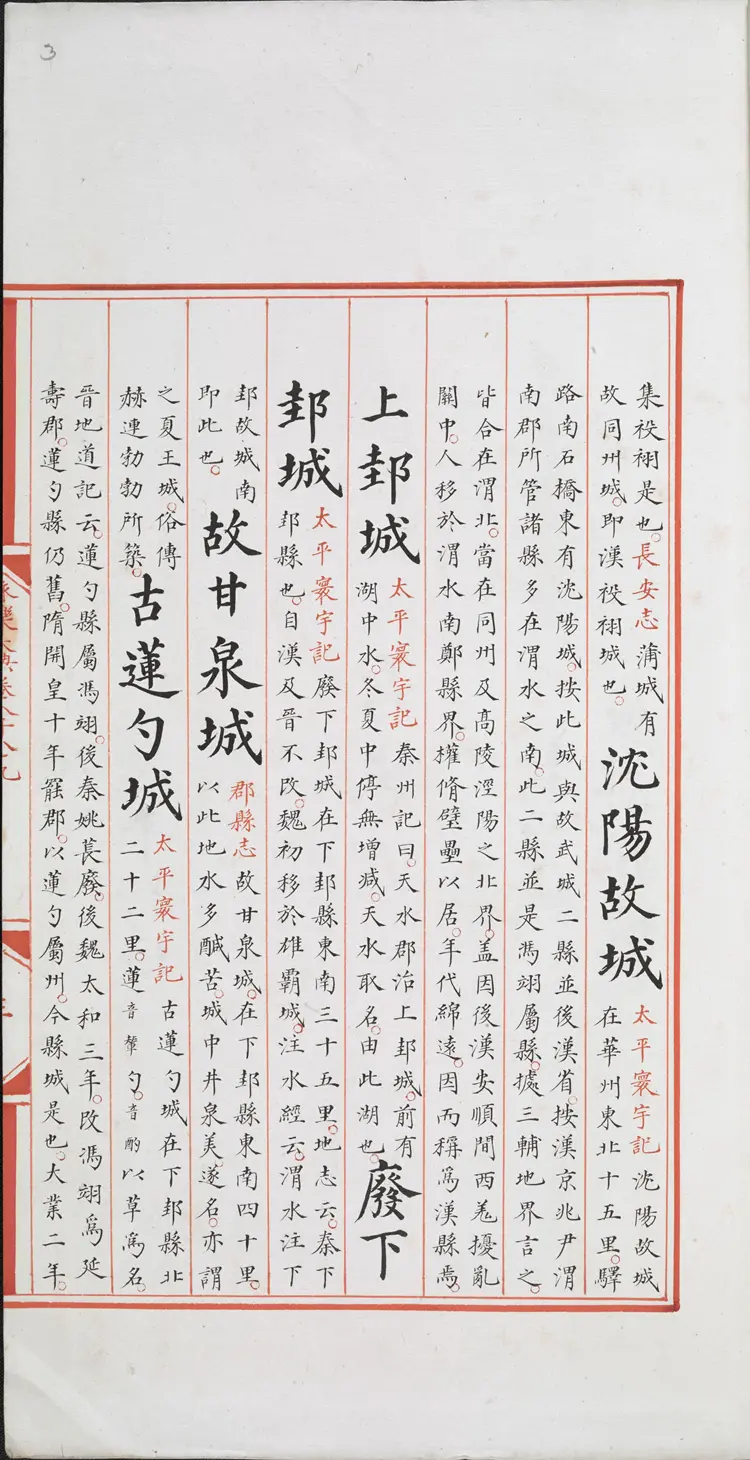 3
集祋祤是也。長安志蒲城有
故同州城。即漢祋祤城也。
沈陽故城
太平寰宇記沈陽故城
在華州東北十五里。驛
路南石橋東有沈陽城。按此城與故武城二縣並後漢省。按漢京兆尹渭
南郡所管諸縣多在渭水之南。此二縣並是馮翊屬縣。據三輔地界言之。
皆合在渭北。當在同州及高陵涇陽之北界。盖因後漢安順間西羌擾亂
關中。人移於渭水南鄭縣界。權脩壁壘以居。年代綿遠。因而稱爲漢縣焉。
上邽城
太平寰宇記秦州記曰。天水郡治上邽城。前有
湖中水。冬夏中停無增减。天水取名。由此湖也。
廢下
邽城
太平寰宇記廢下邽城在下邽縣東南三十五里。地志云。秦下
邽縣也。自漢及晉不改。魏初移於雄霸城。注水經云。渭水注下
邽故城南
即此也。
故甘泉城
郡縣志故甘泉城。在下邽縣東南四十里。
以此地水多醎苦。城中井泉美。遂名。亦謂
之夏王城。俗傳
赫連勃勃所築。
古蓮勺城
太平寰宇記古蓮勺城在下邽縣北
二十二里。蓮音輦勺。音酌以草爲名。
晉地道記云。蓮勺縣屬馮翊。後秦姚萇廢。後魏太和三年。改馮翊爲延
壽郡。蓮勺縣仍舊。隋開皇十年罷郡。以蓮勺屬州。今縣城是也。大業二年。